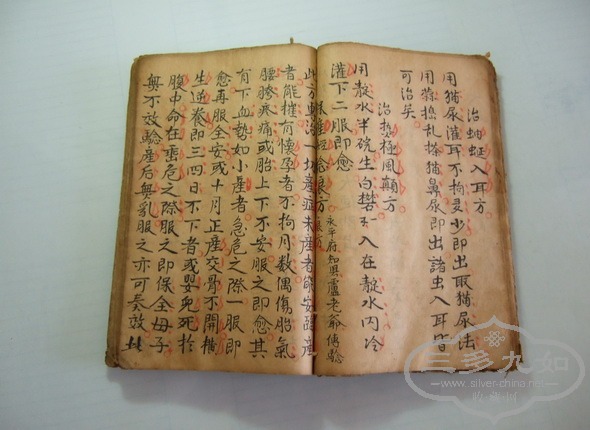 治蚰蜒入耳方
用猫尿灌耳不拘多少即出取猫尿法
用蒜搗扎搽猫鼻尿即出諸虫入耳皆
可治矣
治熱極風顛方
用靛水半碗生白礬入在靛水内冷
灌下二服即愈
永平府知縣盧老爺傳驗
此方專治一切產症未產者能安臨產
者能催有懷孕者不拘月数偶傷胎氣
腰胯疼痛或胎上下不安服之即愈其
有下血勢如小產者急危之際一服即
愈再服全安或十月正產交骨不開橫
生逆養即三四日不下者或嬰兒死於
腹中命在垂危之際服之即保全母子
無不效驗產后無乳服之亦可奏效
三多九如
www.silver-china.net